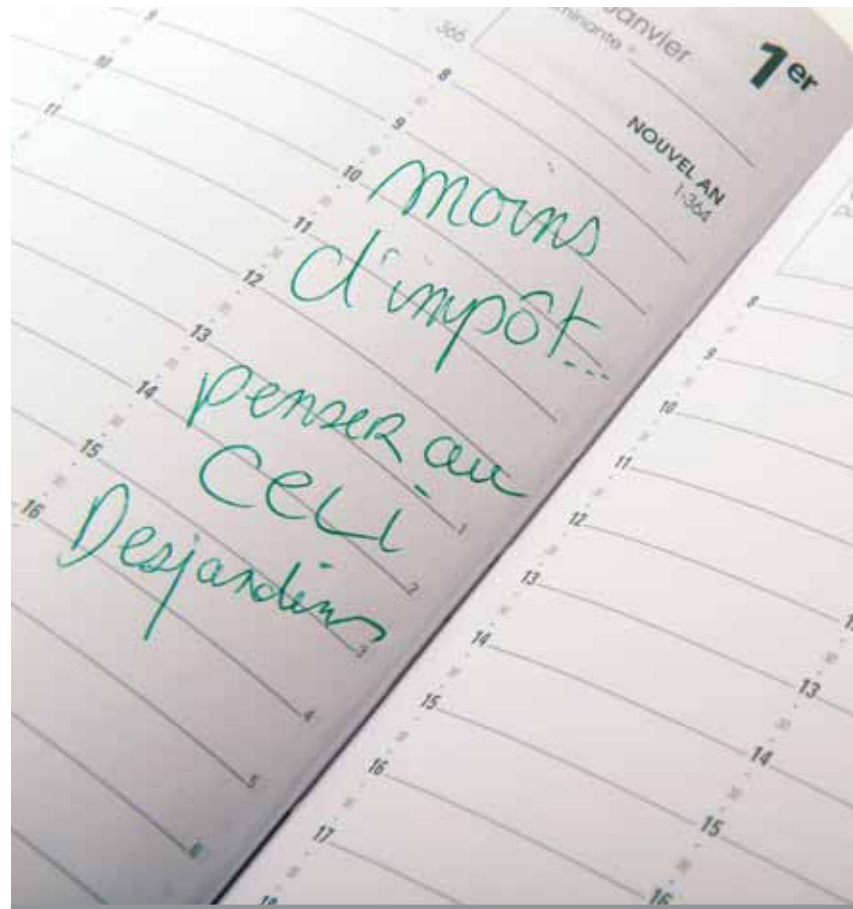 366
Janvier
1er
NOUVEL AN
1-364
8
9
10
11
12
13
14
15
16
moins
d'impôt...
penser au
CELI
Desjardins
1
2
3
4
5
6
9
10
11
8
9
10
11
12
13
14
15
16
17
18
13
14
15
16